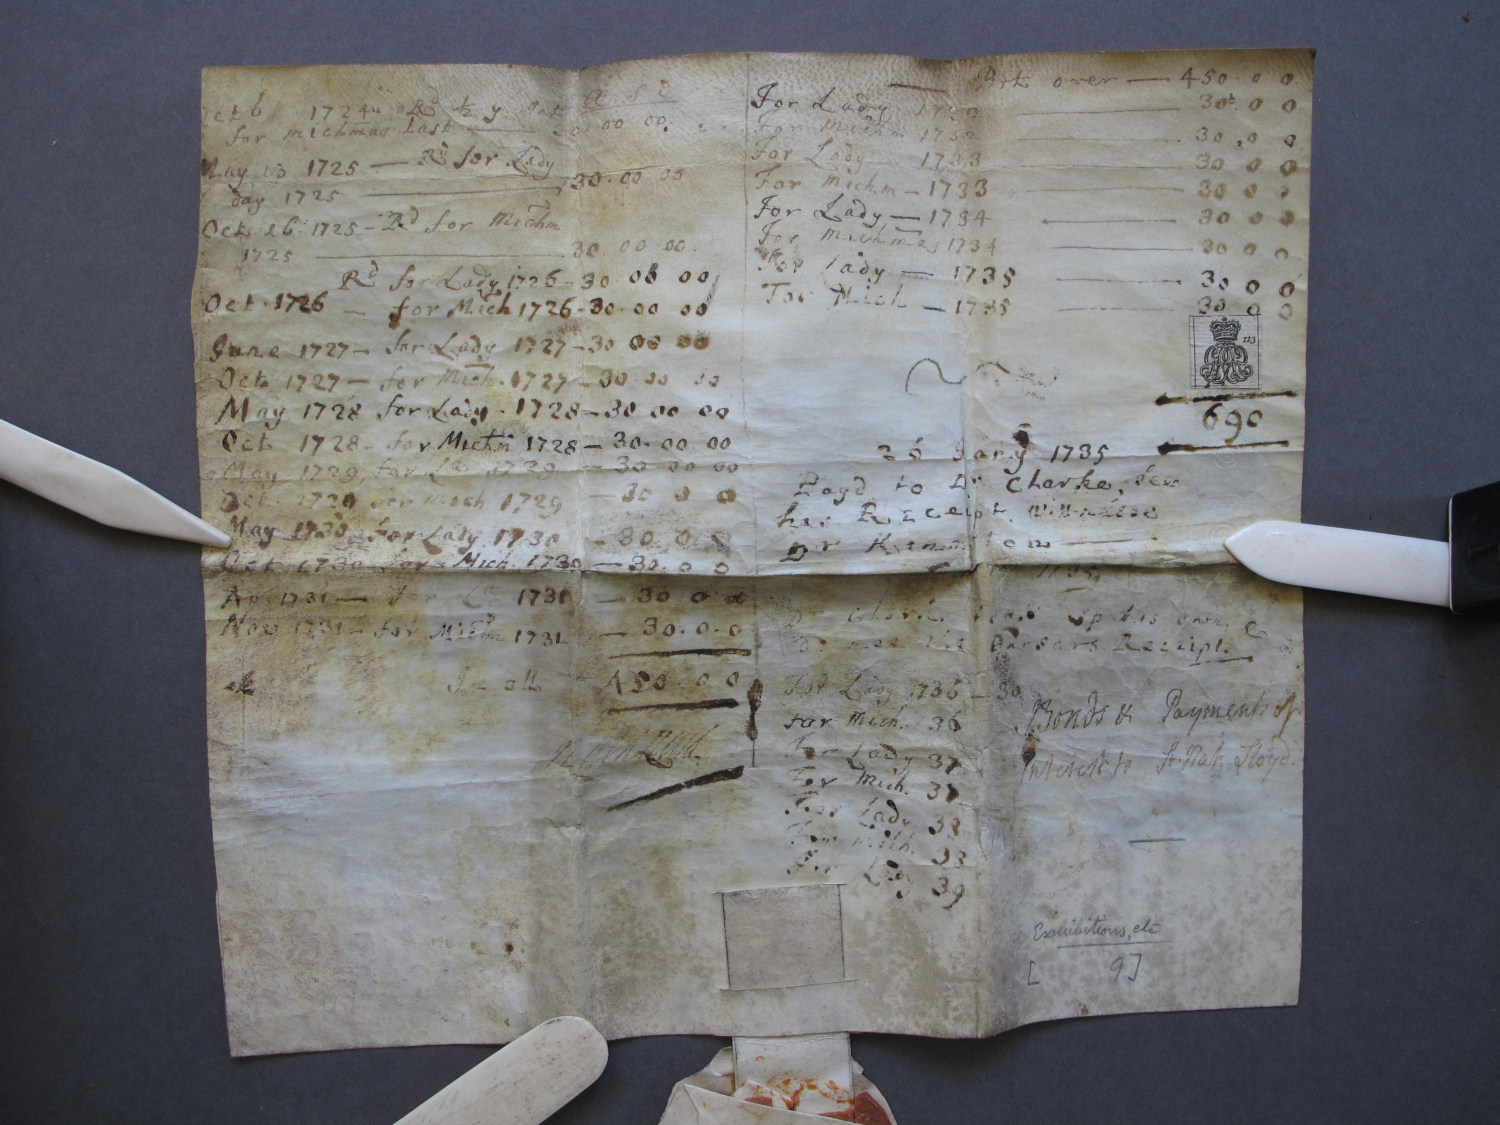 Oct 6 1724 Rd ½ y
£ s d
for Michmas Last 30 00 00
May 13 1725 — Rd for Lady
day 1725 — 30.00 00
Oct. 26. 1725 - Rd for Michm
1725 — 30 00 00
Rd for Lady 1726 - 30 00 00
Oct. 1726 — for Mich 1726 - 30.00 00
June 1727 — for Lady 1727 - 30 00 00
Oct. 1727 — for Mich. 1727 - 30 00 00
May 1728 for Lady. 1728 - 30 00 00
Oct 1728 - for Michm 1728 - 30.00.00
May 1729, for La 1729 - 30 00 00
Oct. 1729 for Mich 1729 - 30 0 0
May 1730 - for Lady 1730 - 30 0 0
Oct 1730 for Mich. 1730 - 30. 0 0
Ap. 1731 — for La 1731 - 30 0 0
Nov 1731 - for Michm 1731 - 30.0.0
In all 450.0.0
over — 450 0 0
For Lady 1732 — 30 0 0
For Michm 1732 — 30 0 0
For Lady — 1733 — 30 0 0
For Michm — 1733 — 30 0 0
For Lady — 1734 — 30 0 0
For Michmas 1734 — 30 0 0
For Lady — 1735 — 30 0 0
For Mich — 1735 — 30 0 0
113
690
26 Jany 1735
Payd to Dr Charke, See
his Receipt.
up his own
Bursars Receipt.
For Lady 1736 - 30
For Mich. 36
For Lady 37
For Mich. 37
For Lady 38
For Mich. 38
For Lady 39
Bonds & Payments of
Interest to Sr Nath Lloyd.
Exhibitions, etc
[ 9]